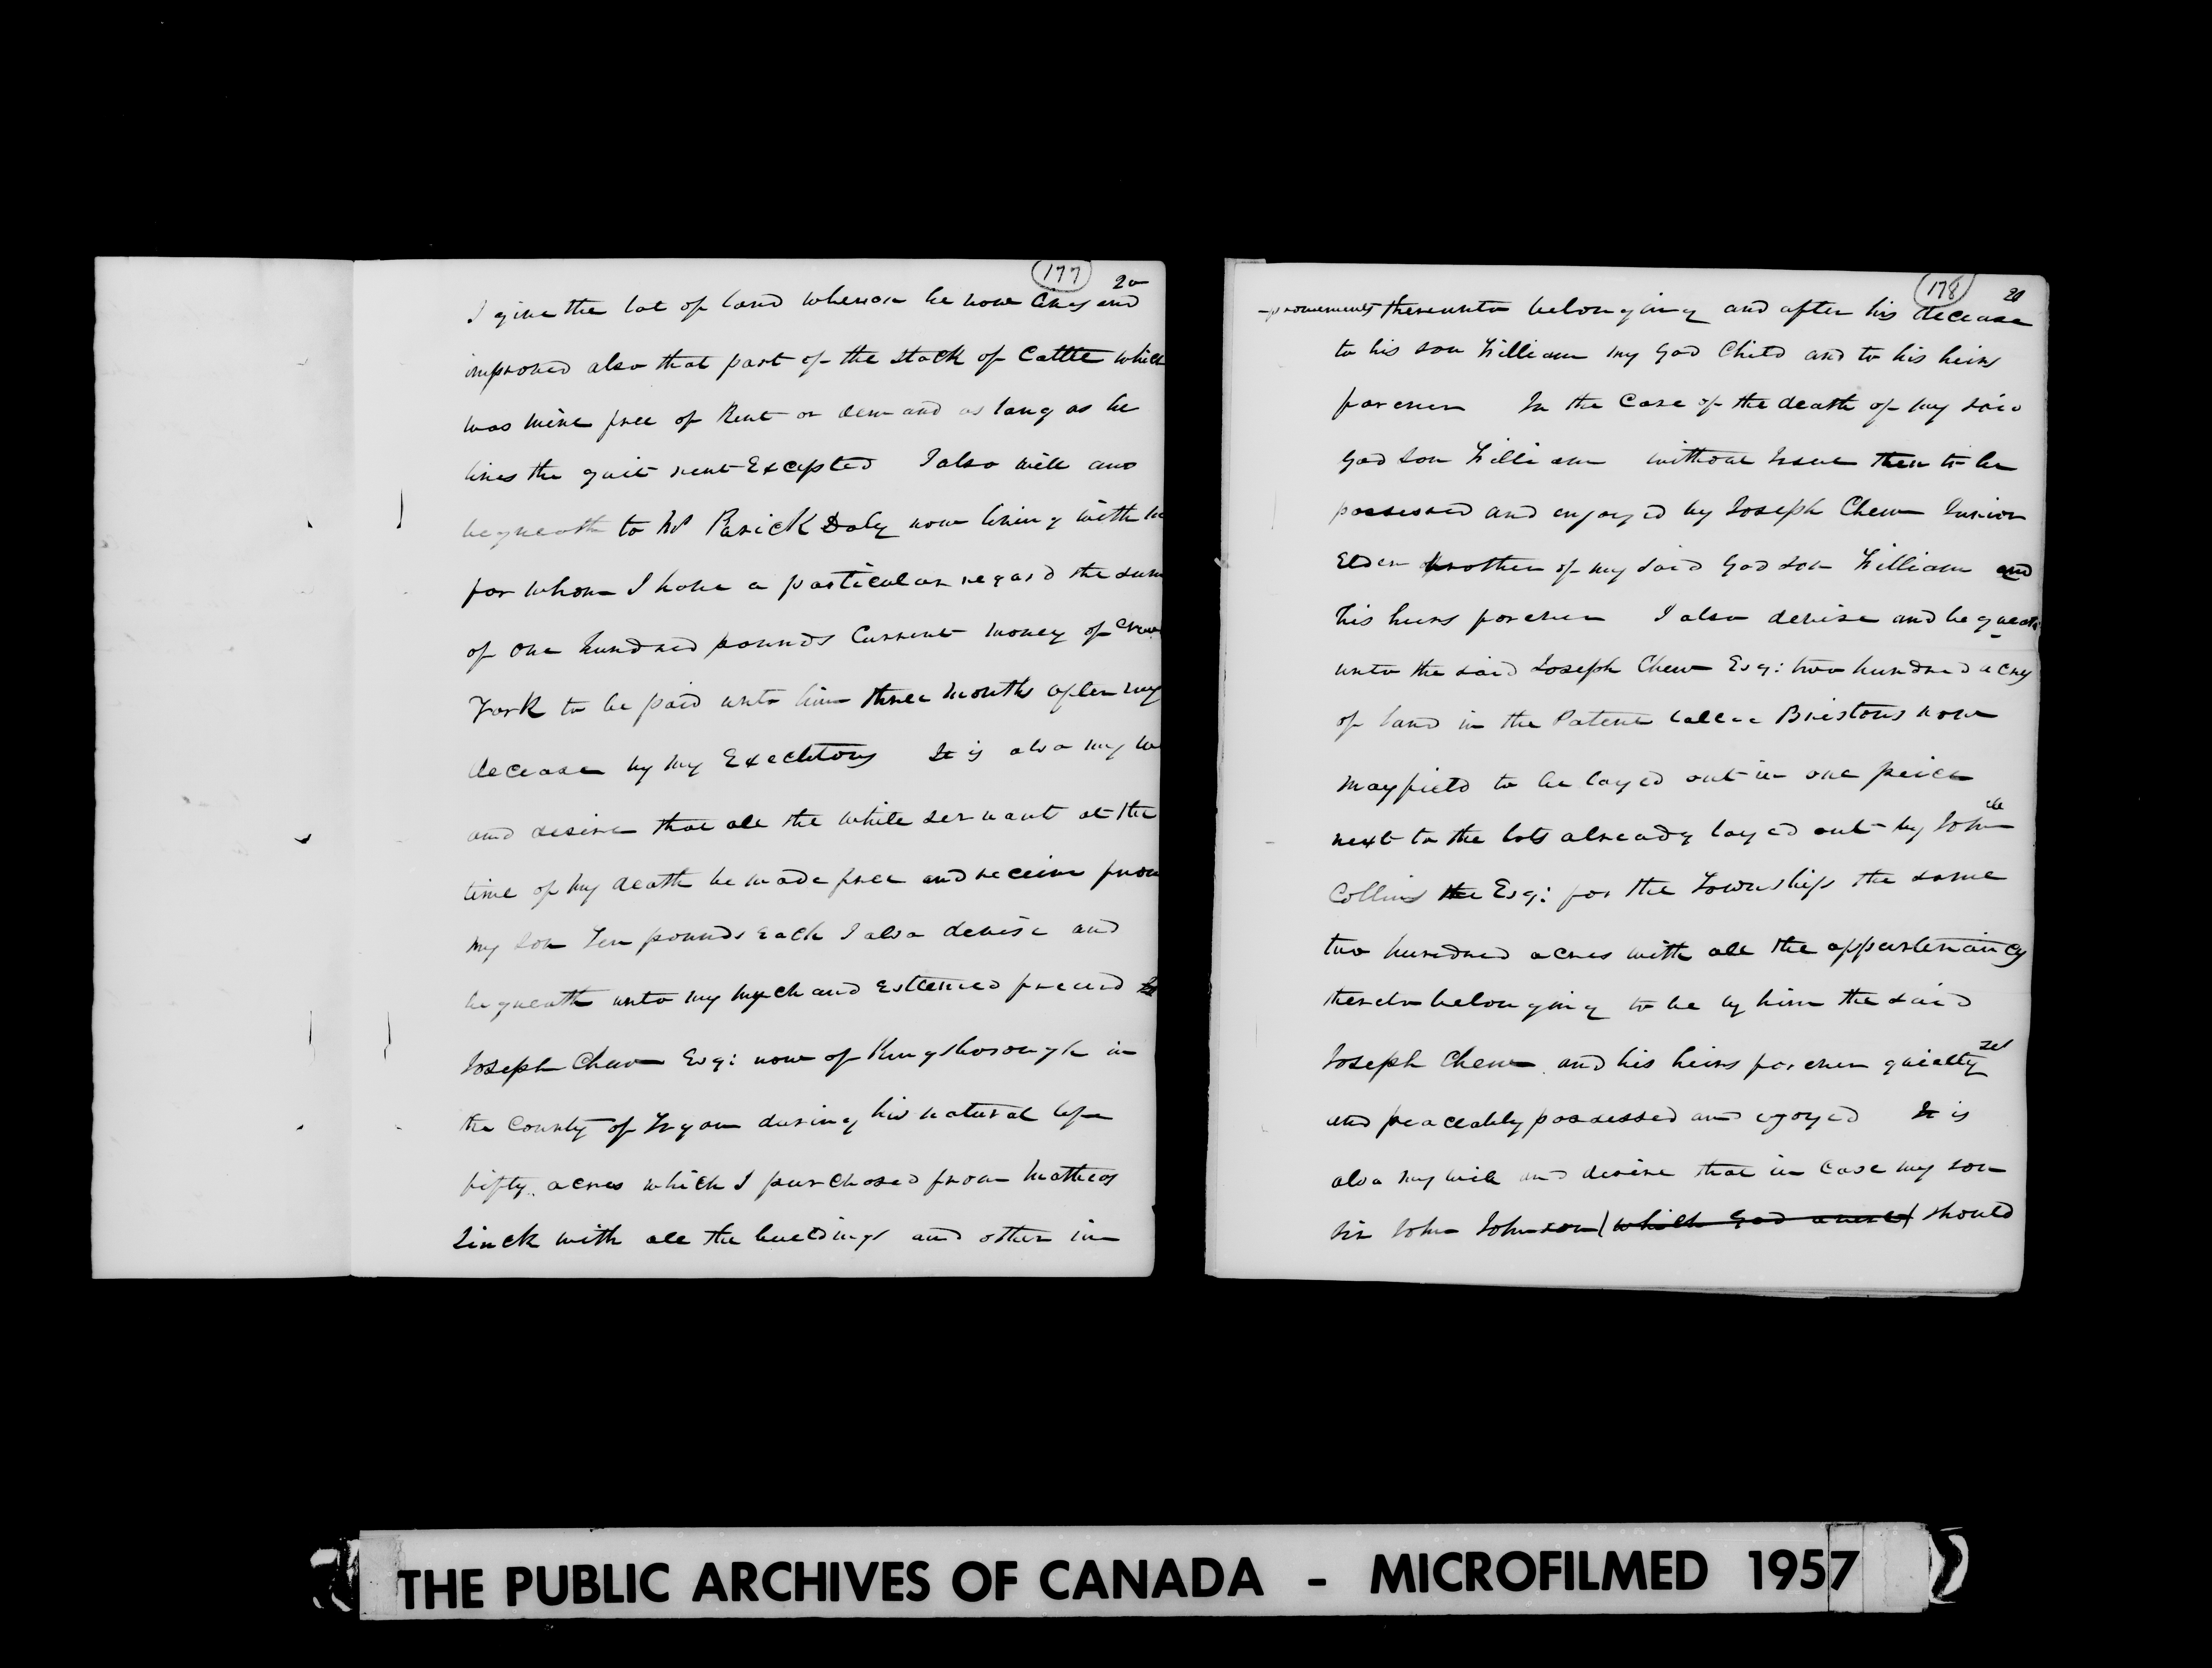 177 20
I give the lot of land whereon he now lives and
improved also that part of the stock of Cattle which
was mine free of Rent or demand as long as he
lives the quit rent Excepted I also will and
bequeath to Mr Parick Daly now living with me
for whom I have a particular regard the sum
of One hundred pounds Current money of New
York to be paid unto him three months after my
decease by my Exechtors It is also my w
and desire that all the white servant at the
time of my death be made free and receive from
my son Ten pounds each I also devise and
bequeath unto my much and esteemed freind
Joseph Chew Esq: now of Kingsborough in
the County of Tryon during his natural life
fifty acres which I purchased from Matheas
Linck with all the buildings and other im
178 21
-provements thereunto belonging and after his decease
to his son William my God Child and to his heirs
forever In the Case of the death of my said
god son William without issue then to be
possessed and enjoyed by Joseph Chew Junior
Elder brother of my said God son William and
his heirs forever I also devise and bequeath
unto the said Joseph Chew Esq: two hundred acres
of land in the Patent called Bristons now
mayfield to be layed out in one peice
next to the lots already layed out by John
Collins the Esq: for the Townships the same
two hundred acres with all the appurtenances
thereto belonging to be by him the said
Joseph Chew and his heirs forever quietly
and peaceably possessed and ejoyed It is
also my will and desire that in case my son
Sir John Johnson (which God avert) should
THE PUBLIC ARCHIVES OF CANADA - MICROFILMED 1957